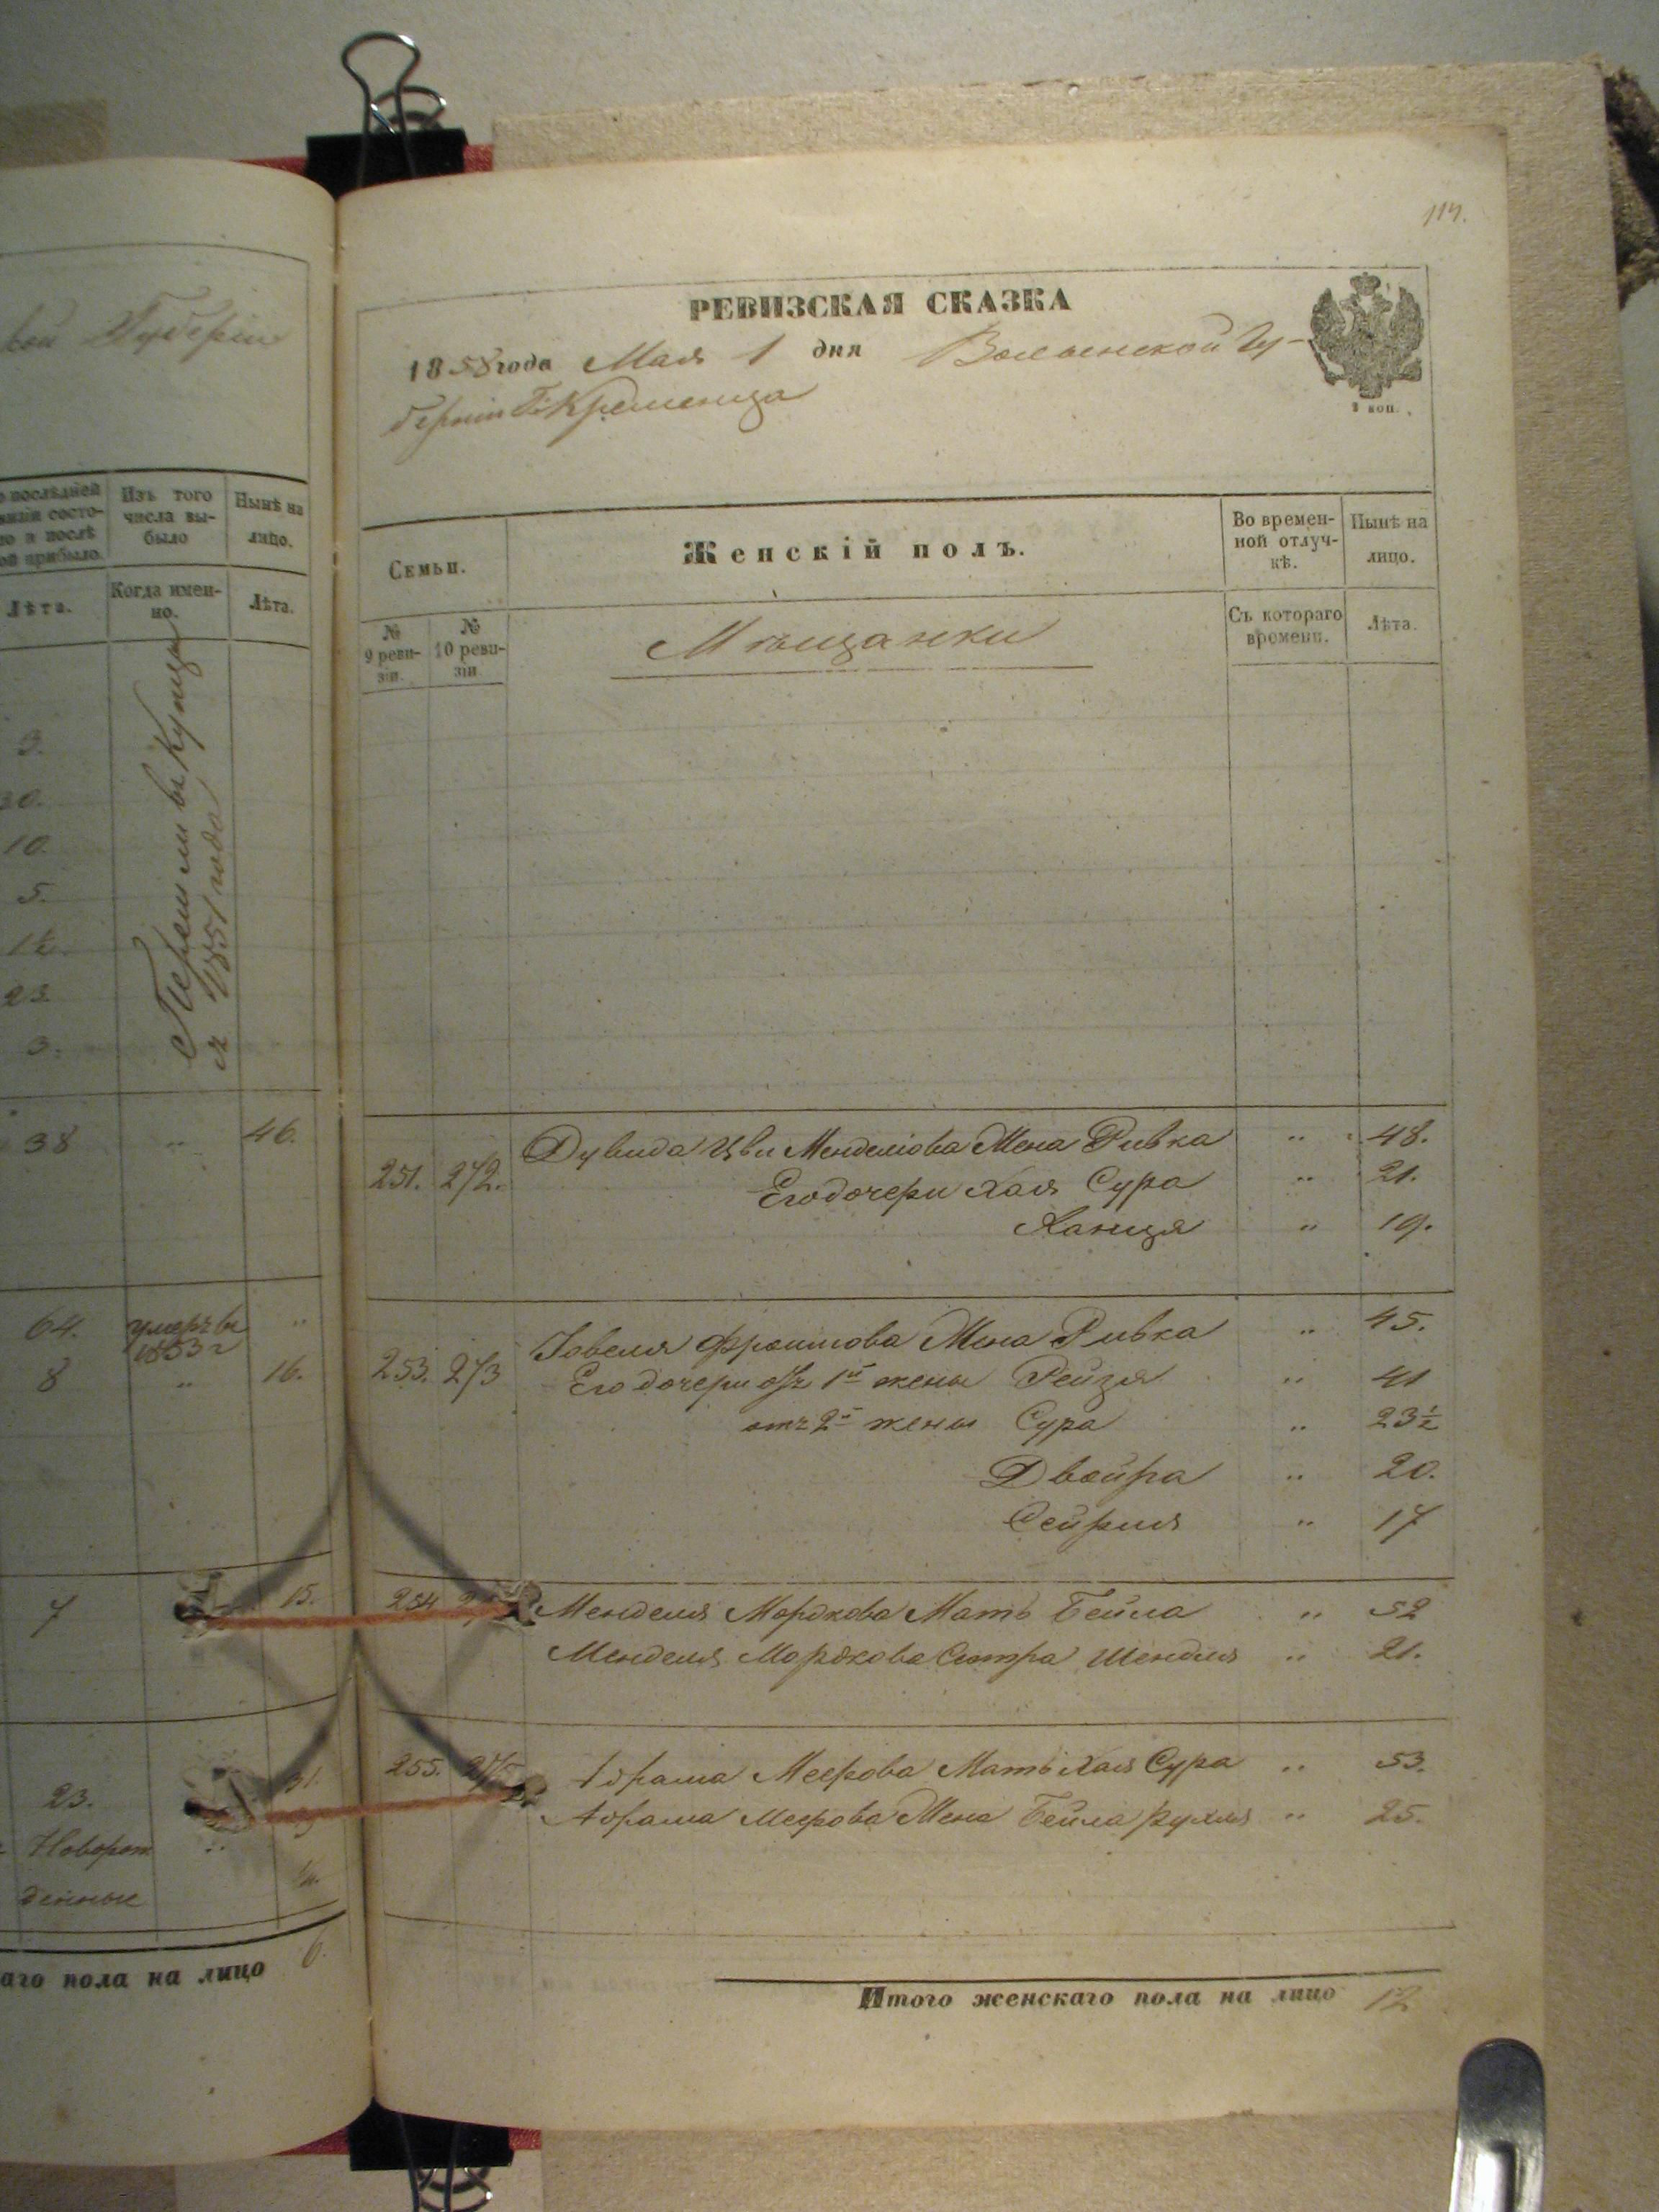 кой Губерніи
послѣдней
визіи состо-
ло и послѣ
ой прибыло.
Изъ того
числа вы-
было
Нынѣ на
лицо.
Лѣта.
Когда имен-
но.
Лѣта.
Перешли въ Купцы
съ 1851 года
3.
30.
10.
5.
1½.
23.
3.
38 „ 46.
64. умеръ въ „
1853 г
8 „ 16.
7 15.
23. 31.
Новорож „
денные
аго пола на лицо 6.
114.
РЕВИЗСКАЯ СКАЗКА
1858 года Мая 1 дня Волынской Гу-
берніи Г. Кременца
Семьи.
Женскій полъ.
Во времен-
ной отлуч-
кѣ.
Нынѣ на
лицо.
№
9 реви-
зіи.
№
10 реви-
зіи
Мѣщанки
Съ котораго
времени.
Лѣта.
251. 272. Дувида Цви Менделіова Жена Ривка „ 48.
Его дочери Хая Сура „ 21.
Ханця „ 19.
253. 273 Іовеля Фроимова Жена Ривка „ 45.
Его дочери отъ 1й жены Рейзя „ 41
отъ 2й жены Сура „ 23½
Двойра „ 20.
Сейриля „ 17
254 Менделя Мордкова Мать Бейла „ 52
Менделя Мордкова Сестра Шендля „ 21.
255. 275 Абрама Меерова Мать Хая Сура „ 53.
Абрама Меерова Жена Бейла Рухля „ 25.
Итого женскаго пола на лицо 12